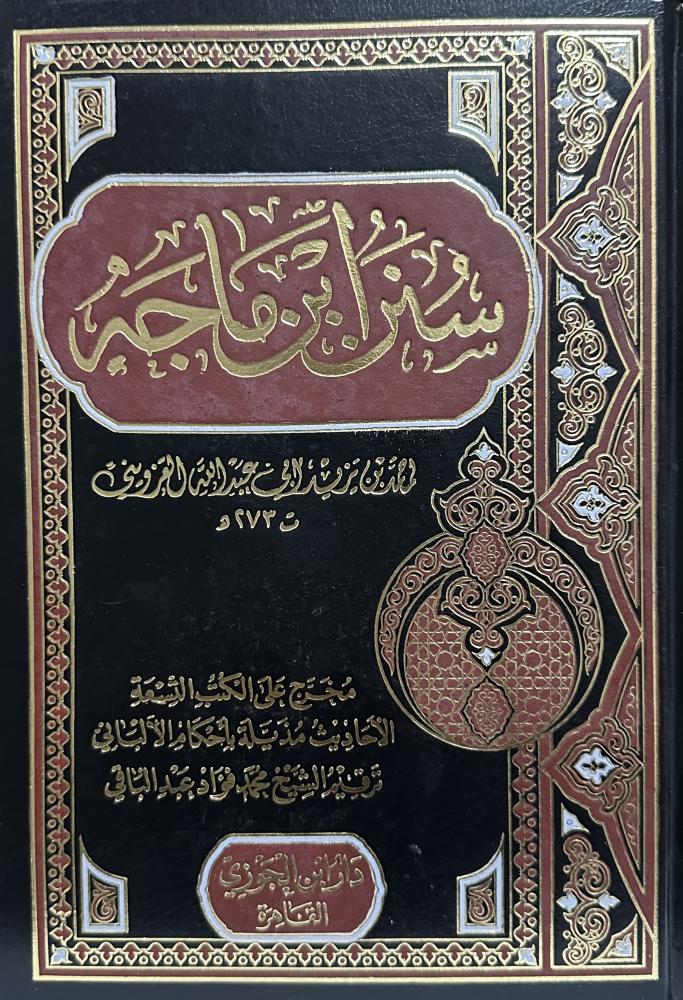 سُنَنُ ابْنِ مَاجَهْ
لمحمد بن يزيد أبي عبد الله القزويني
ت ٢٧٣ هـ
مُخَرَّج عَلَى الكُتُبِ التِّسْعَةِ
الأحَادِيثُ مُذَيَّلَة بِأحْكَامِ الألْبَانِي
تَرْقِيمُ الشَّيْخ مُحَمَّد فُؤَاد عَبْد البَاقِي
دَارُ ابْنِ الجَوْزِي
القَاهِرَة